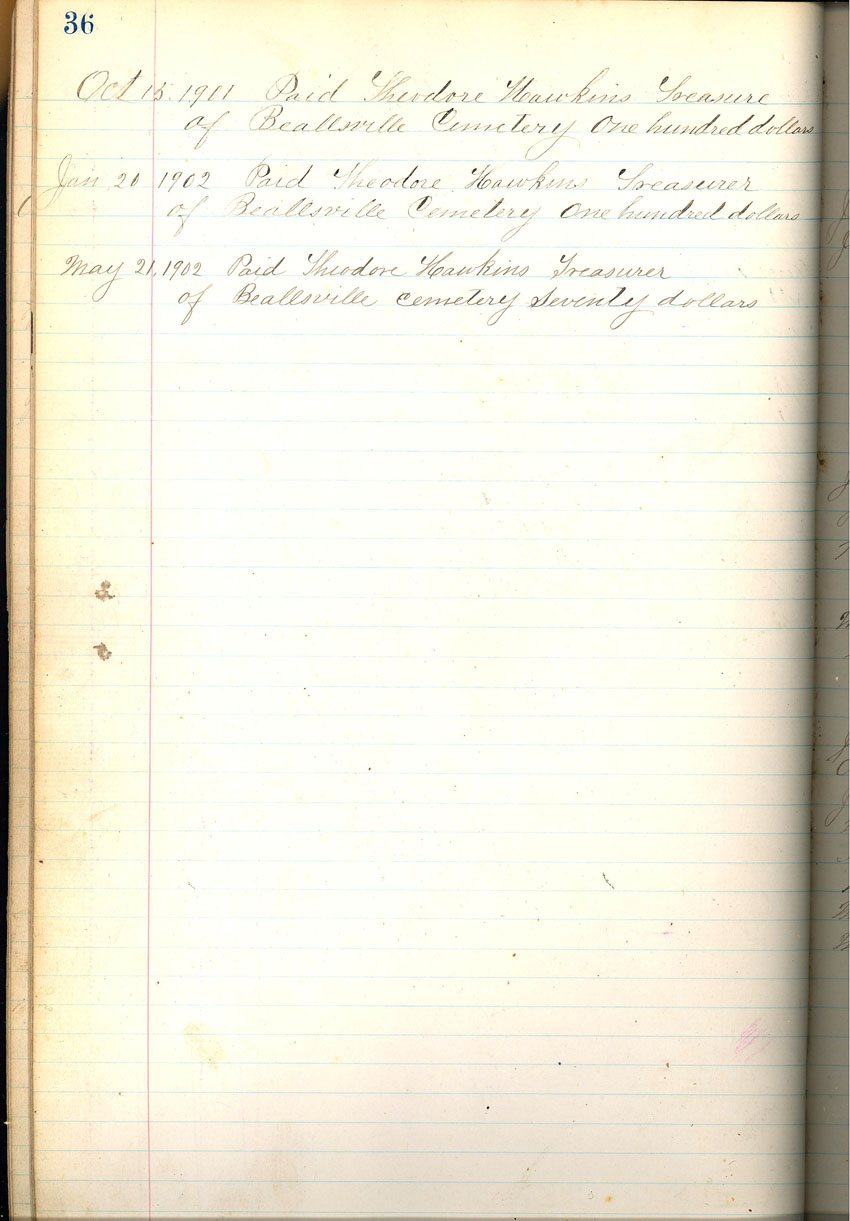 36
Oct 15, 1901 Paid Theodore Hawkins Treasure
of Beallsville Cemetery One hundred dollars
Jan 20 1902 Paid Theodore Hawkins Treasurer
of Beallsville Cemetery One hundred dollars
May 21, 1902 Paid Theodore Hawkins Treasurer
of Beallsville cemetery Seventy dollars